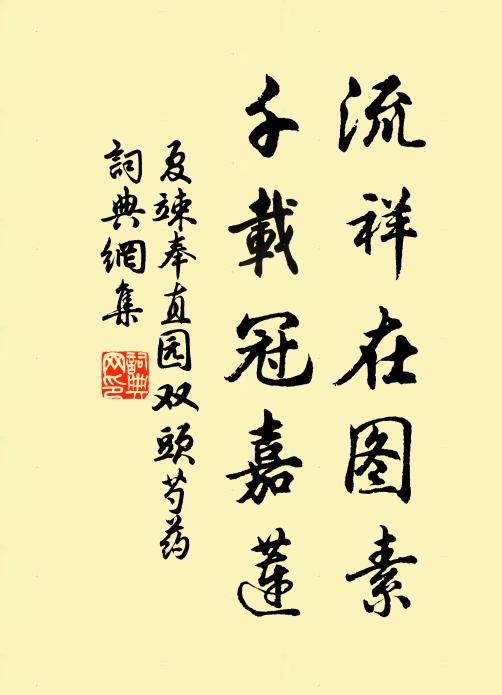 流祥在图素
千載冠嘉蓮
夏竦奉直园双頭芍药
詞典網集
詞典网印